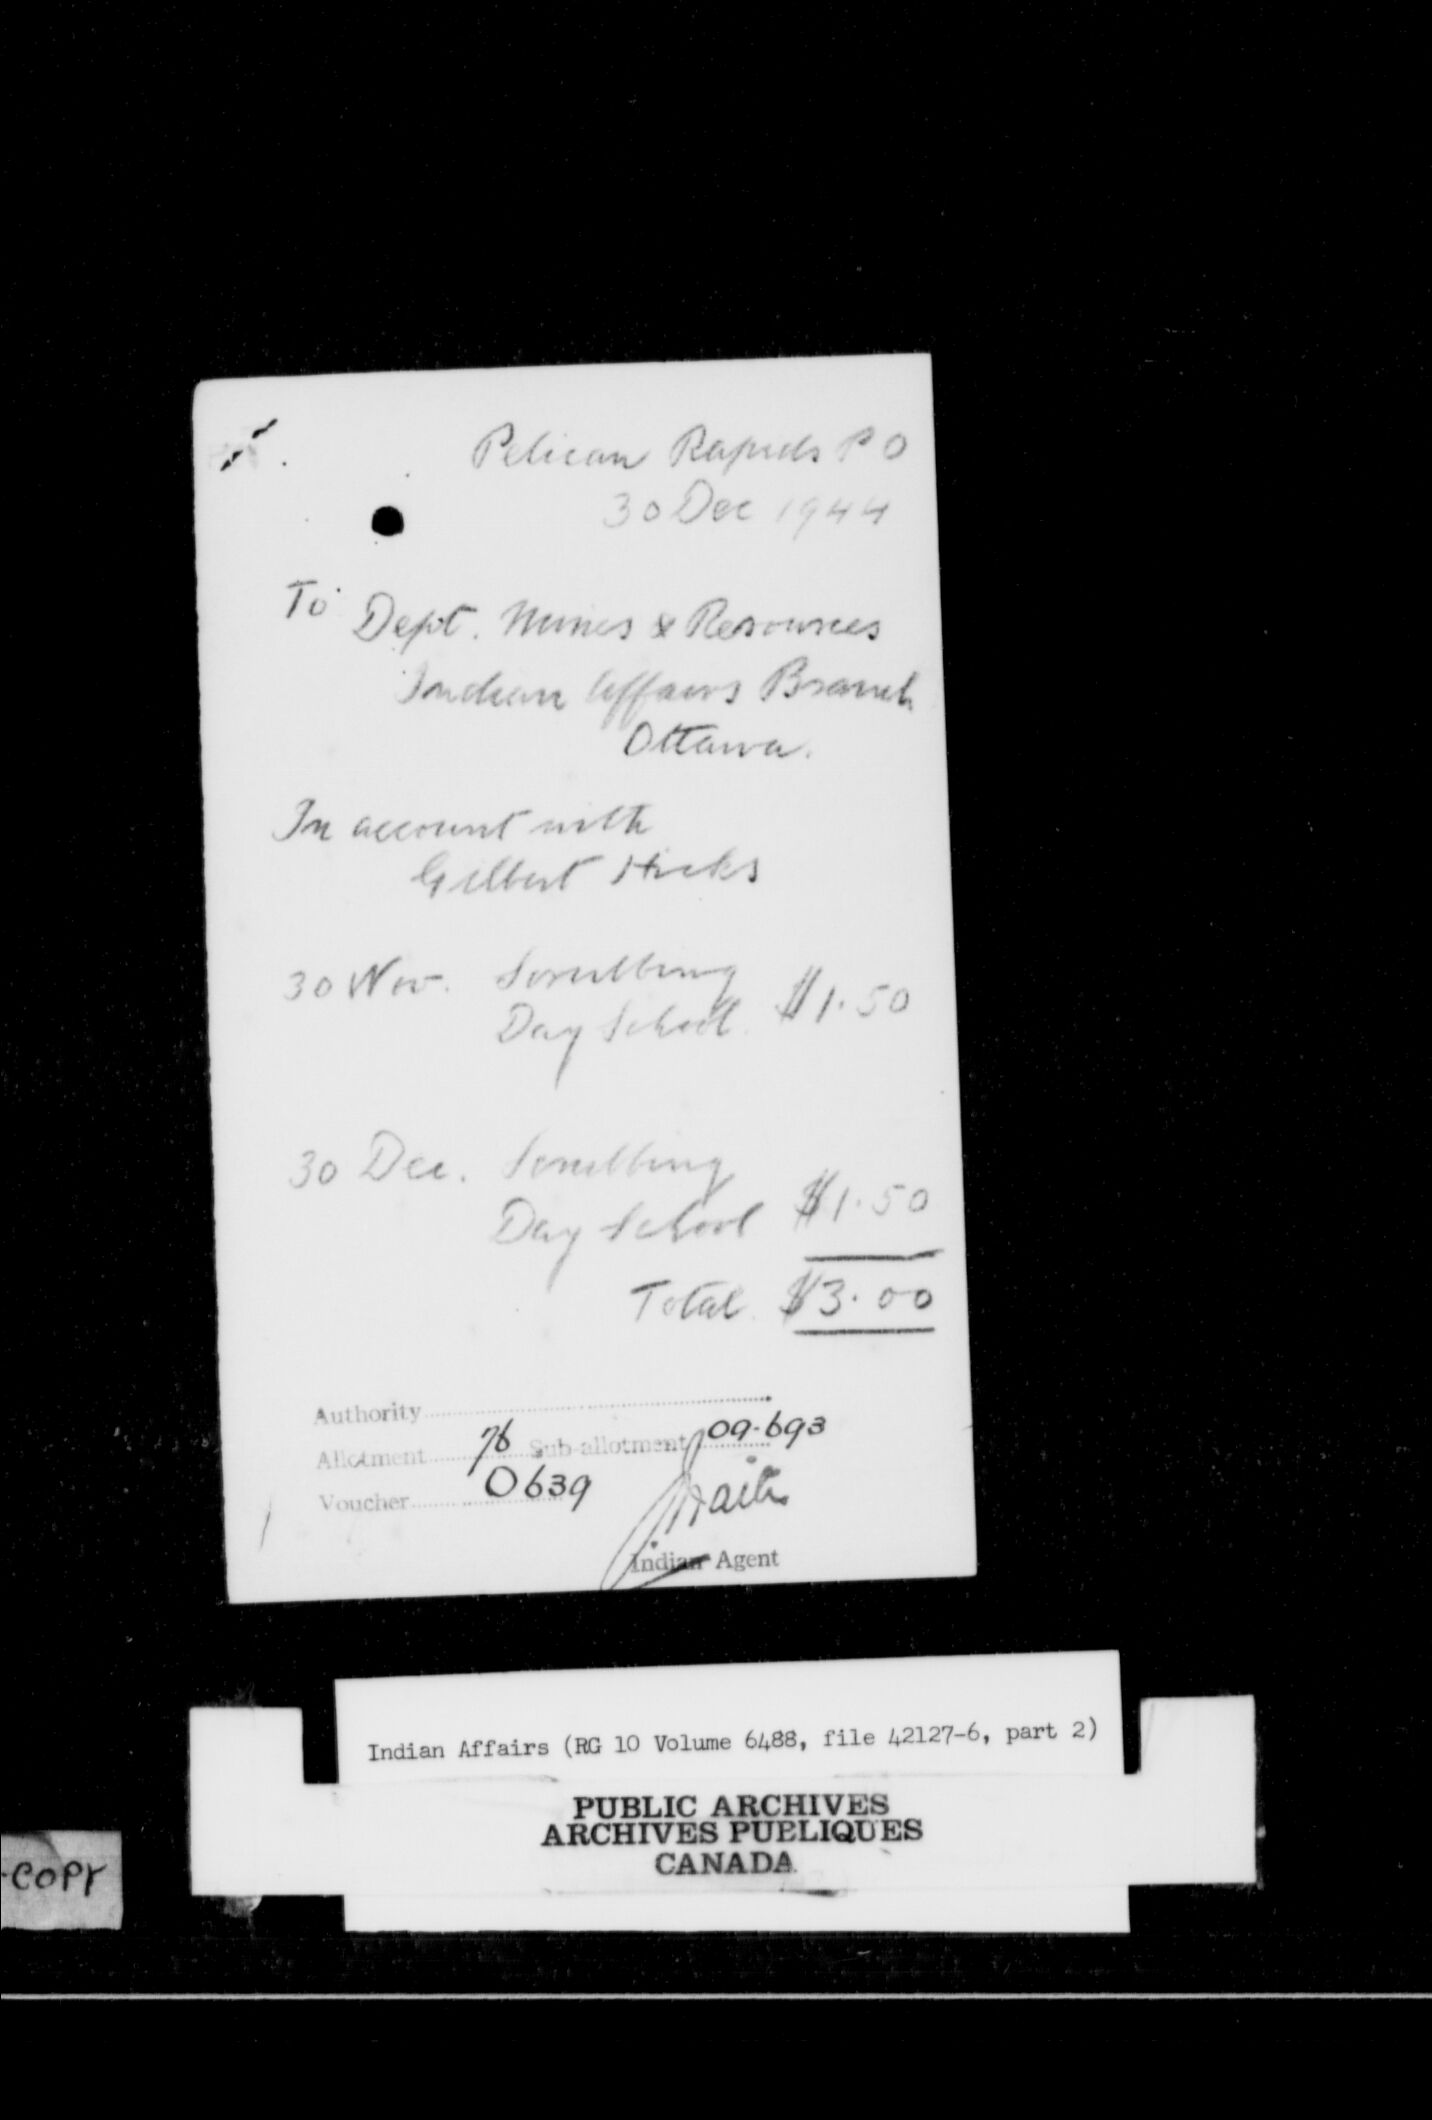 Pelican Rapids P O
30 Dec 1944
To Dept. Mines & Resources
Indian Affairs Branch
Ottawa.
In account with
Gilbert Hicks
30 Nov. Scrubbing
Day School $1.50
30 Dec. Scrubbing
Day School $1.50
Total $3.00
Authority
Allotment 76 Sub-allotment 09-693
Voucher 0639
Indian Agent
Indian Affairs (RG 10 Volume 6488, file 42127-6, part 2)
PUBLIC ARCHIVES
ARCHIVES PUBLIQUES
CANADA
COPY